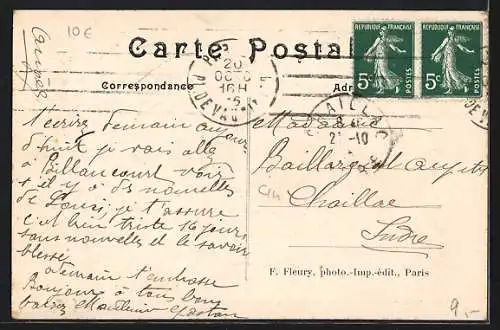 10€
Carte Postale
Correspondance
REPUBLIQUE FRANÇAISE
REPUBLIQUE FRANÇAISE
5c POSTES
5c POSTES
20
16H
CHAILLAC
t'écrirai demain
je vais aller
à Billancourt voir
s'il y a des nouvelles
de Louis, je t'assure
c'est bien triste 16 jours
sans nouvelles et le savoir
blessé
a demain t'embrasse
Bonjours à tous bons
baisers
Madame
Baillargeat
Chaillac
Indre
F. Fleury, photo.-Imp.-édit., Paris
9,-